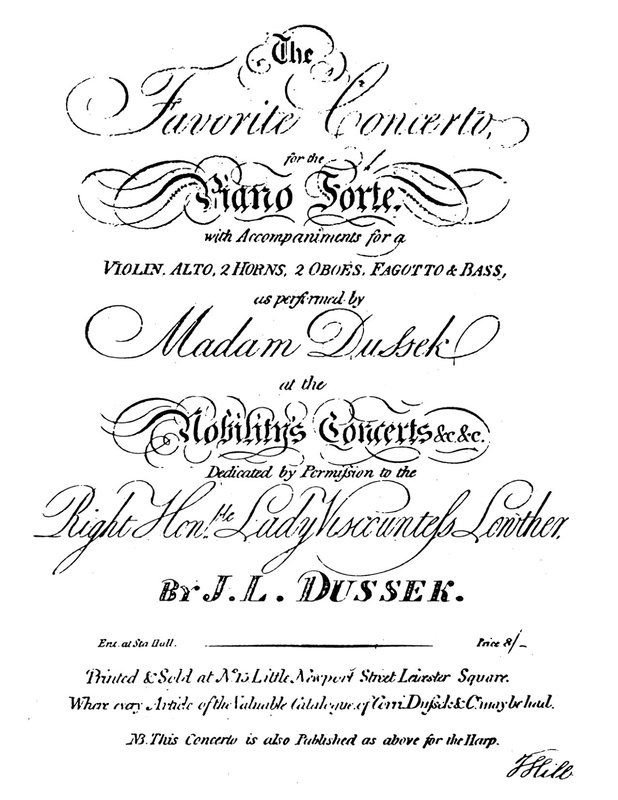 The
Favorite Concerto,
for the
Piano Forte.
with Accompaniments for a
VIOLIN. ALTO, 2 HORNS, 2 OBOES, FAGOTTO & BASS,
as performed by
Madam Dussek
at the
Nobility's Concerts &c. &c.
Dedicated by Permission to the
Right Hon.ble Lady Viscountess Lowther.
BY J. L. DUSSEK.
Ent. at Sta. Hall. Price 8/-
Printed & Sold at No. 15 Little Newport Street Leicester Square.
Where every Article of the Valuable Catalogue of Corri Dussek & Co. may be had.
NB. This Concerto is also Published as above for the Harp.